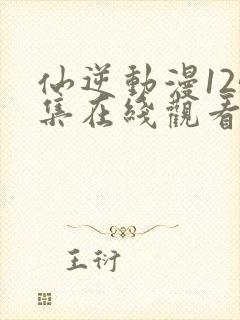 仙逆動漫12
集在綫觀看
王衍